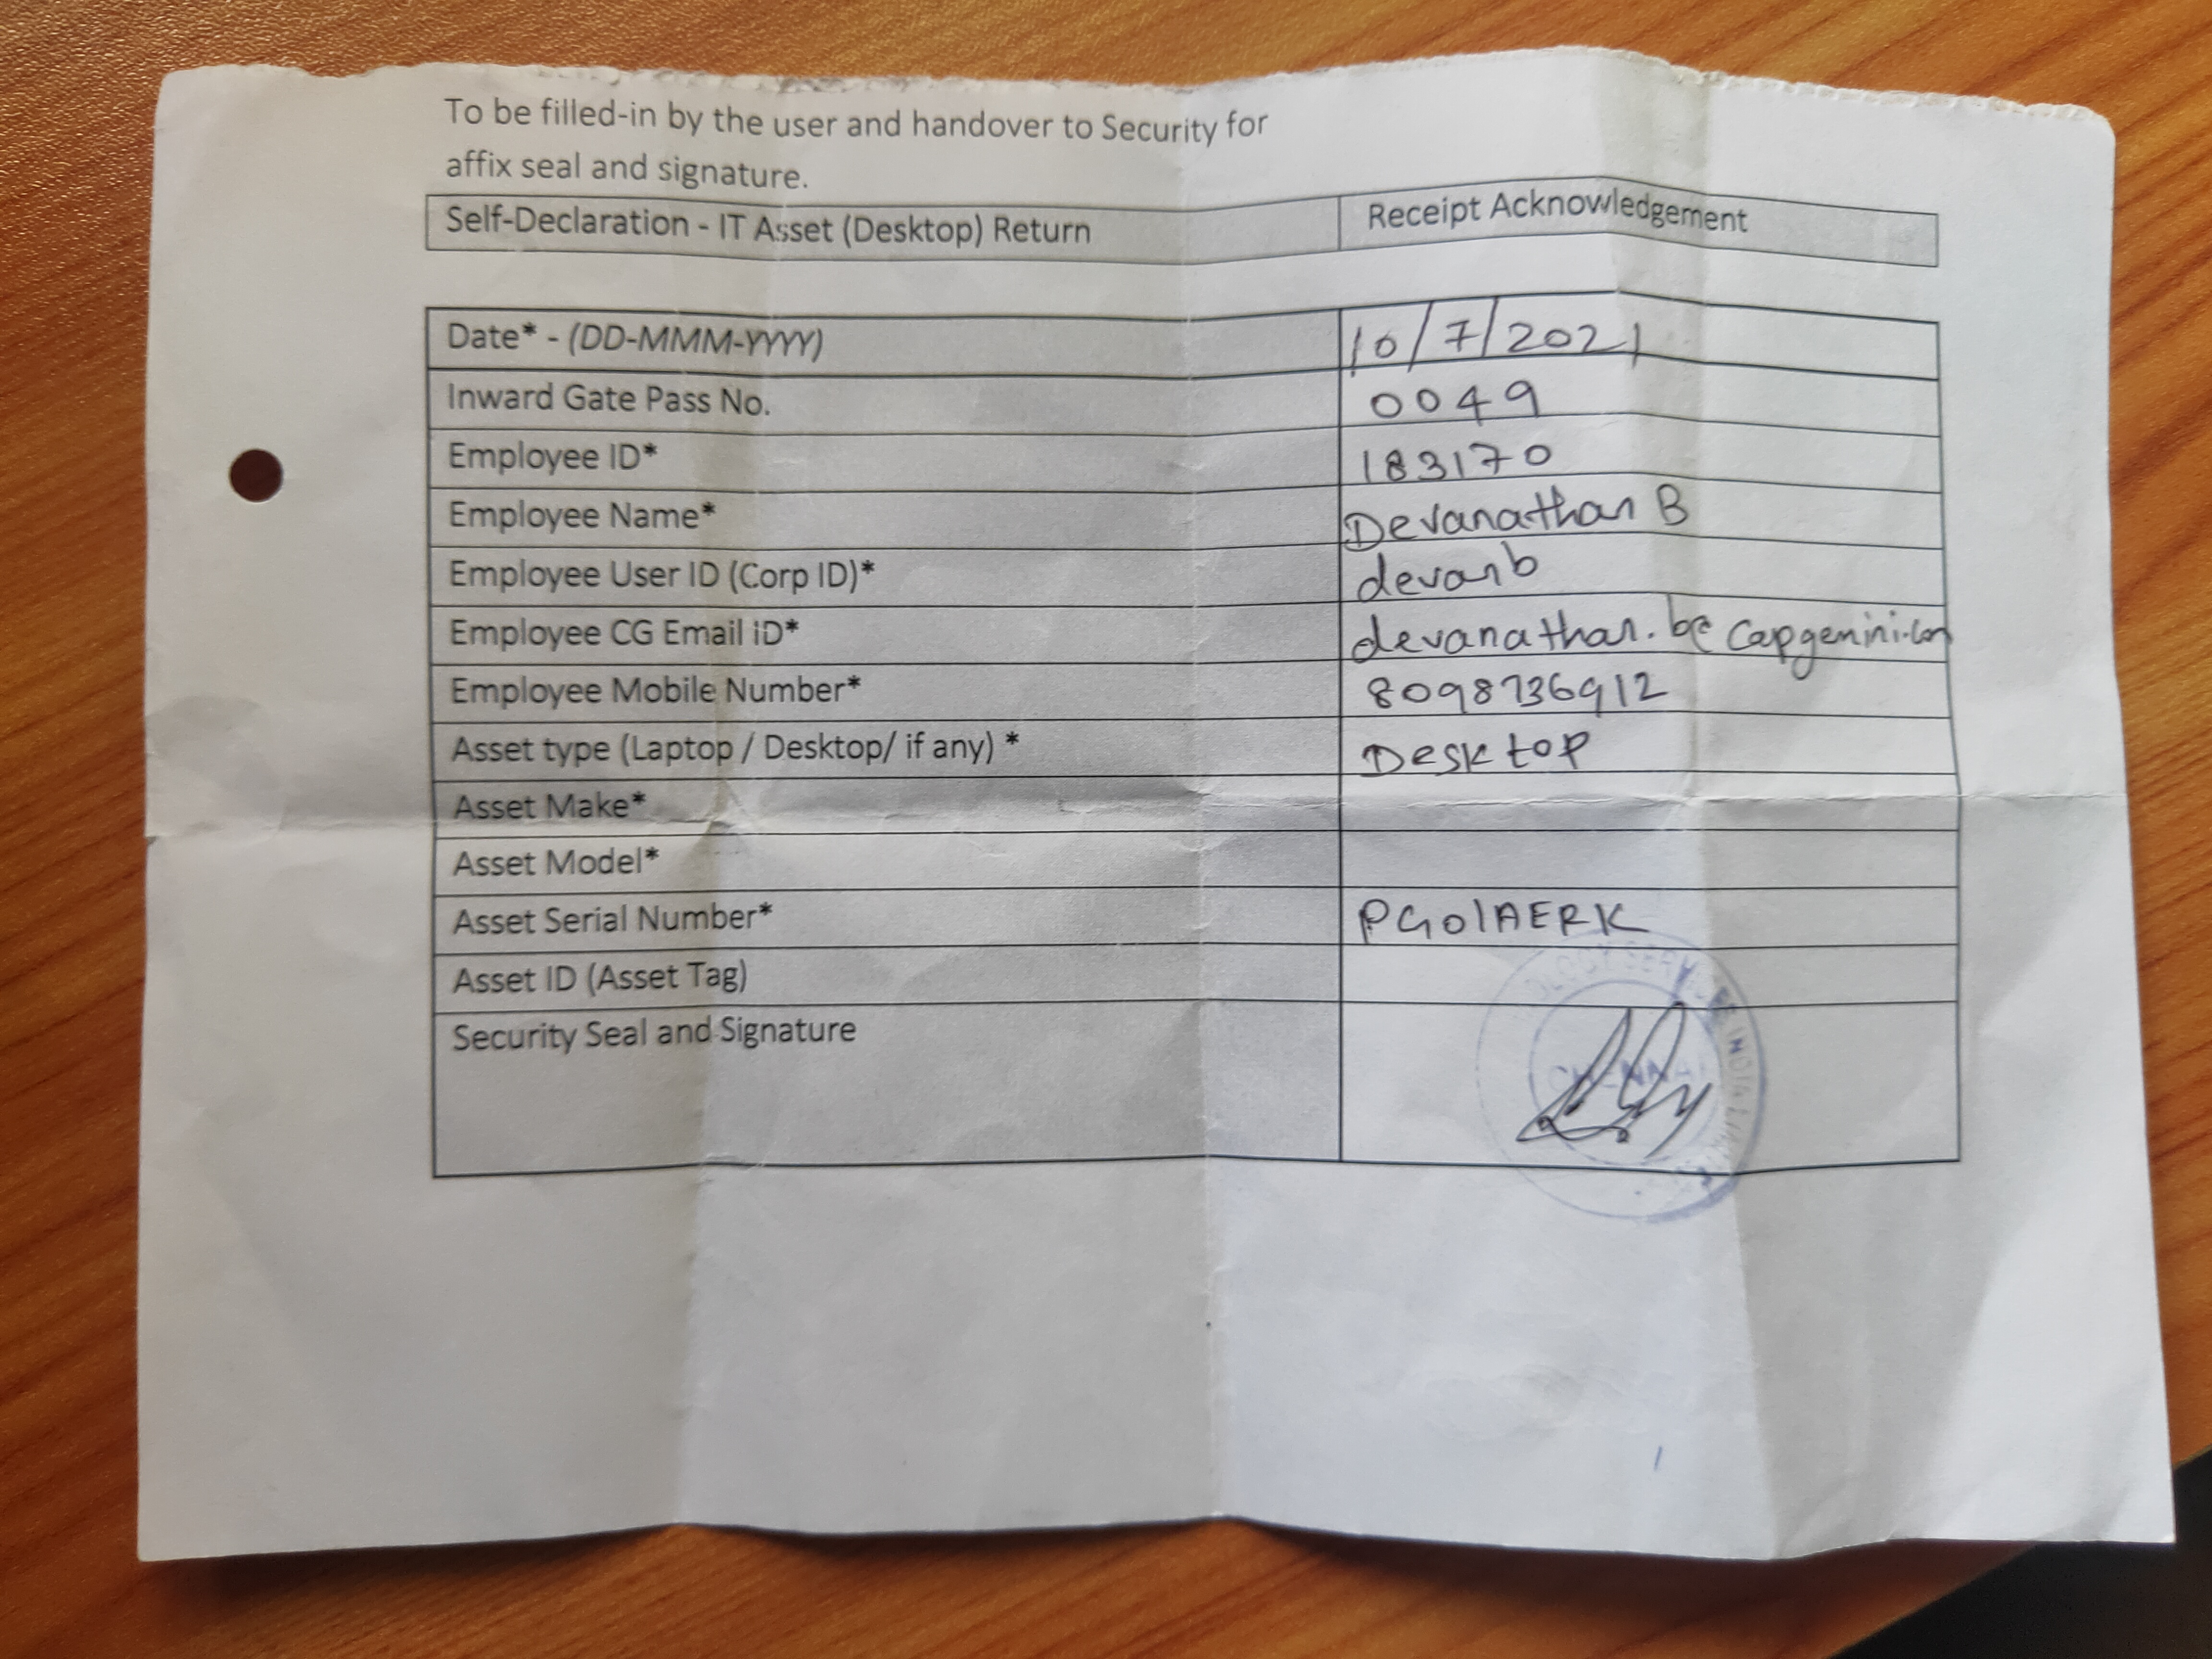 To be filled-in by the user and handover to Security for
affix seal and signature.
Self-Declaration - IT Asset (Desktop) Return Receipt Acknowledgement
Date* - (DD-MMM-YYYY) 10/7/2021
Inward Gate Pass No. 0049
Employee ID* 183170
Employee Name* Devanathan B
Employee User ID (Corp ID)* devanb
Employee CG Email iD* devanathan.b@capgemini.com
Employee Mobile Number* 8098736912
Asset type (Laptop / Desktop/ if any) * Desktop
Asset Make*
Asset Model*
Asset Serial Number* PG01AERK
Asset ID (Asset Tag)
Security Seal and Signature
CHENNAI